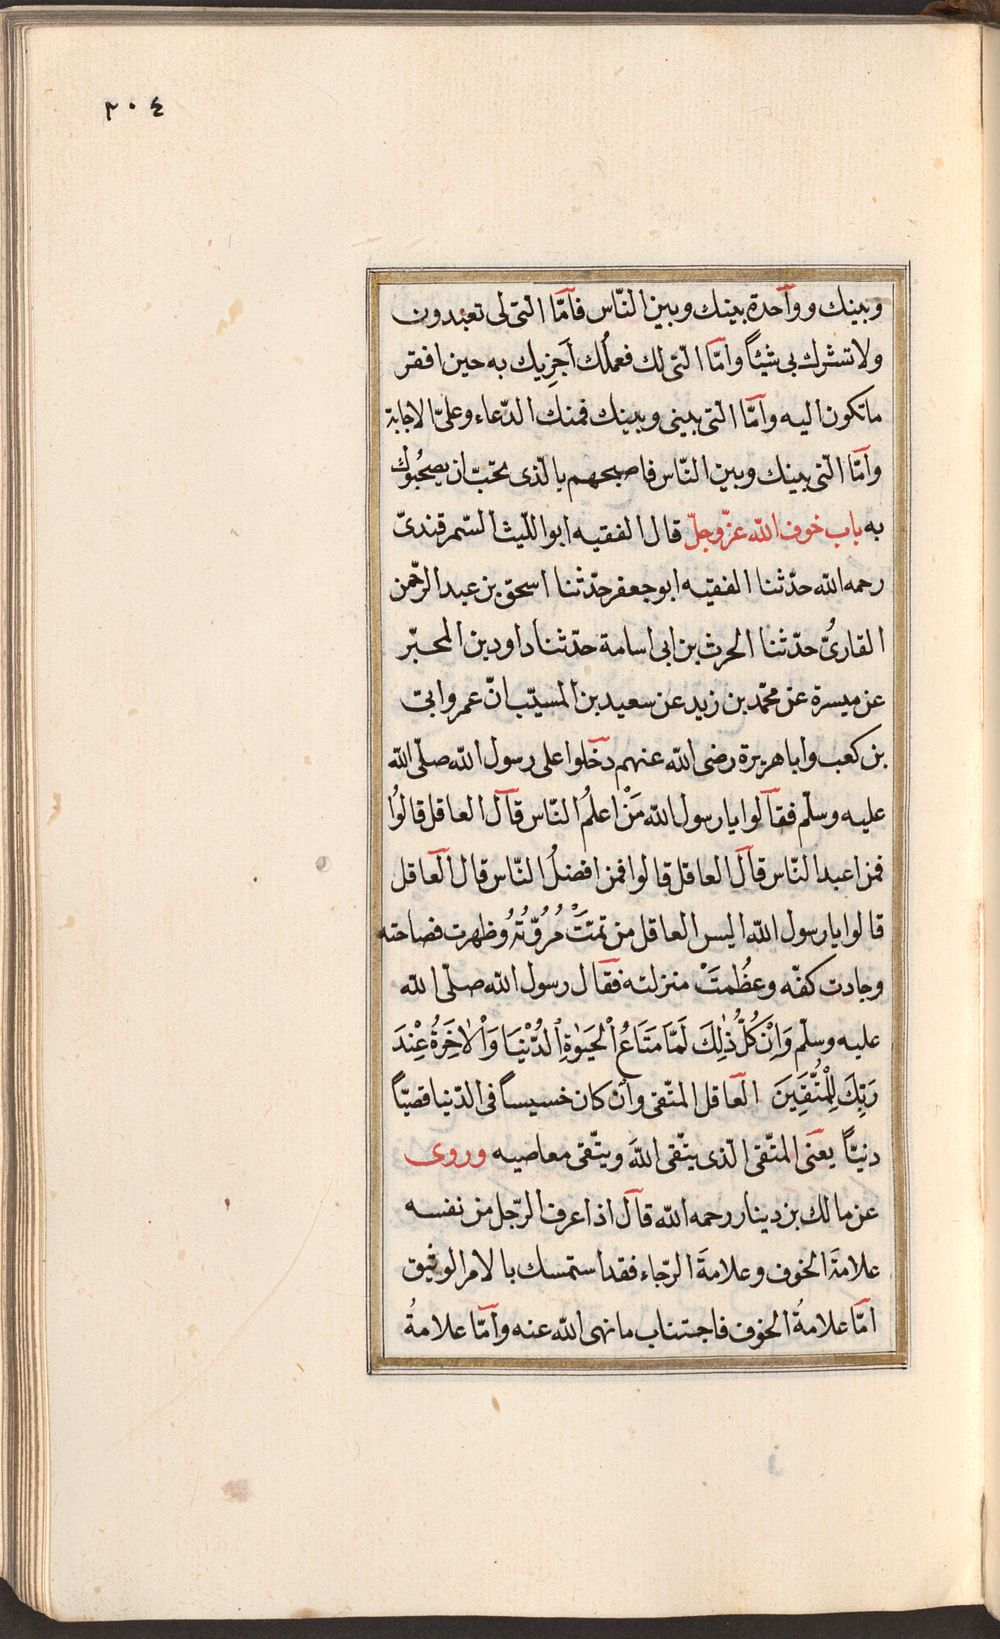 ٣٠٤
وبينك وواحدة بينك وبين النّاس فامّا الّتى لى تعبدون
ولا تشرك بى شيئاً وامّا الّتى لك فعملك اجزيك به حين افقر
ماتكون اليه وامّا الّتى بينى وبينك فمنك الدّعاء وعلىّ الاجابة
وامّا الّتى بينك وبين النّاس فاصبحهم بالّذى تحبّ ان يصحبوك
به باب خوف اللّه عزّ وجلّ قال الفقيه ابو اللّيث السّمرقندىّ
رحمه اللّه حدّثنا الفقيه ابو جعفر حدّثنا اسحق بن عبد الرّحمن
القارئُ حدّثنا الحرث بن ابى اسامة حدّثنا داود بن المحبّر
عن ميسرة عن محمّد بن زيد عن سعيد بن المسيّب انّ عمر وابىّ
بن كعب وابا هريرة رضى اللّه عنهم دخلوا على رسول اللّه صلّى اللّه
عليه وسلّم فقالوا يا رسول اللّه مَنْ اعلمُ النّاس قال العاقل قالوُا
فمن اعبد النّاس قال العاقل قالوا فمن افضلُ النّاس قال العاقل
قالوا يا رسول اللّه اليس العاقل من تمّتْ مُرُوّتُهُ وظهرت فصاحته
وجادت كفّه وعظُمتْ منزلته فقال رسول اللّه صلّى اللّه
عليه وسلّم وَاِنْ كُلُّ ذٰلِكَ لَمَّا مَتَاعُ الْحَيٰوةِ الدُّنْيَا وَالْاٰخِرَةُ عِنْدَ
رَبِّكَ لِلْمُتَّقِينَ العاقل المتّقى وان كان خسيساً فى الدّنيا قصيّاً
دنيّاً يعنى المتّقى الّذى يتّقى اللّهَ ويتّقى معاصيه وروى
عن مالك بن دينار رحمه اللّه قال اذا عرف الرّجل من نفسه
علامةَ الخوف وعلامةَ الرّجاء فقد استمسك بالامر الوثيق
امّا علامةُ الخوف فاجتناب ما نهى اللّه عنه وامّا علامةُ